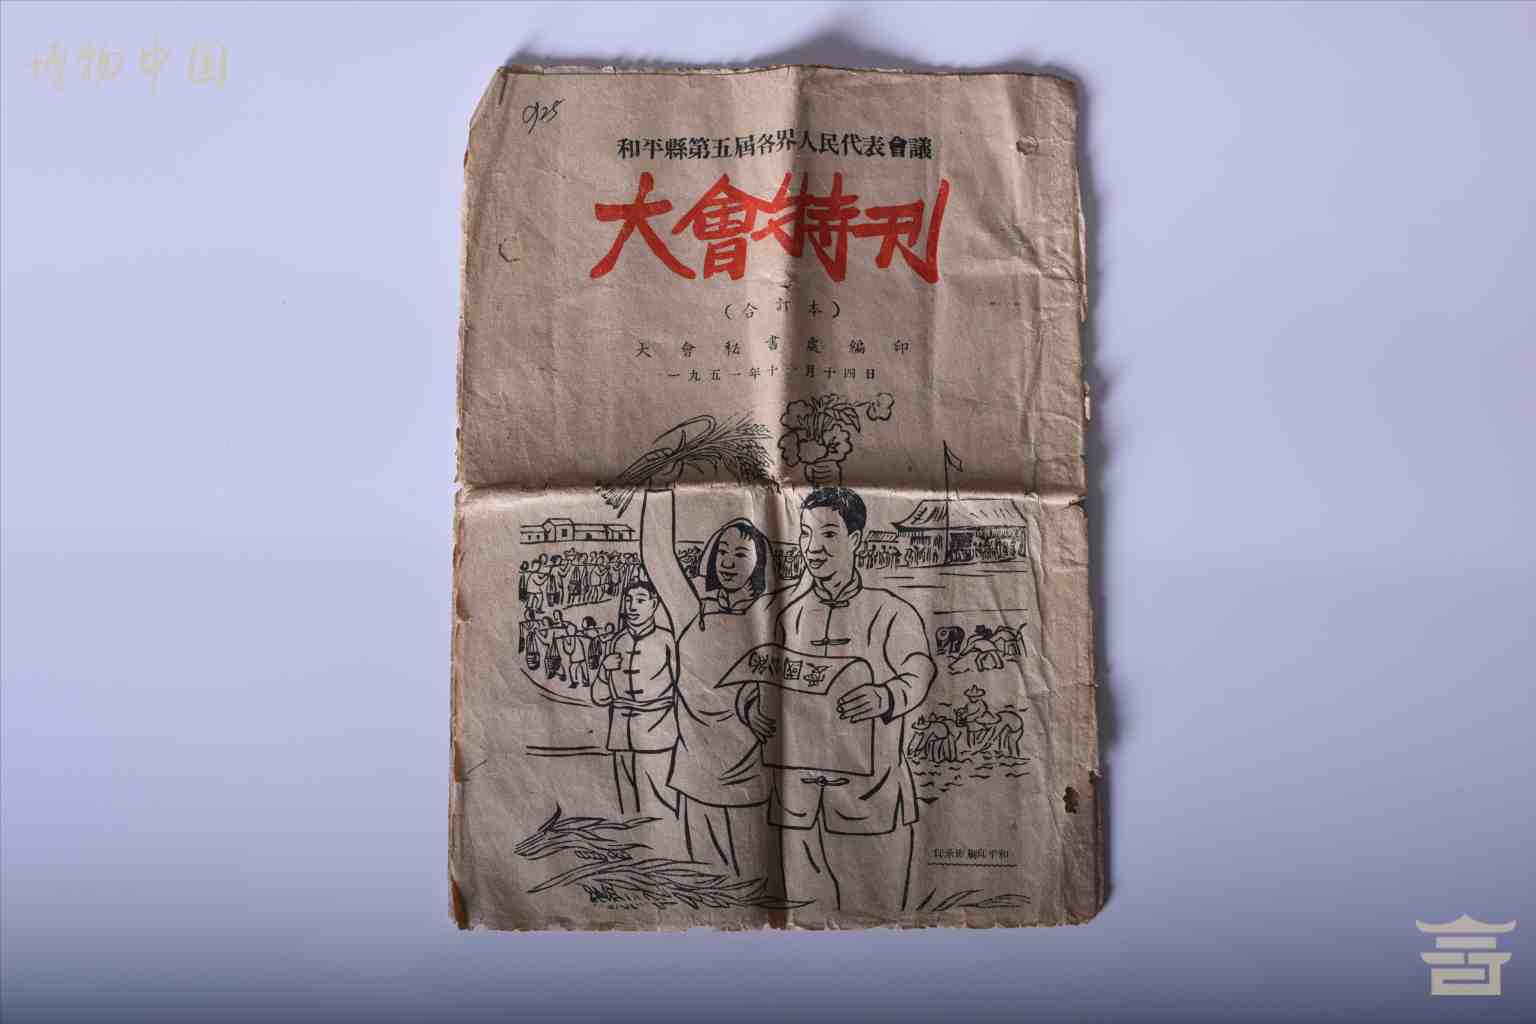 博物中国
925
和平縣第五屆各界人民代表會議
大會特刊
(合訂本)
大會秘書處編印
一九五一年十一月十四日
愛國公約
和平印刷所承印